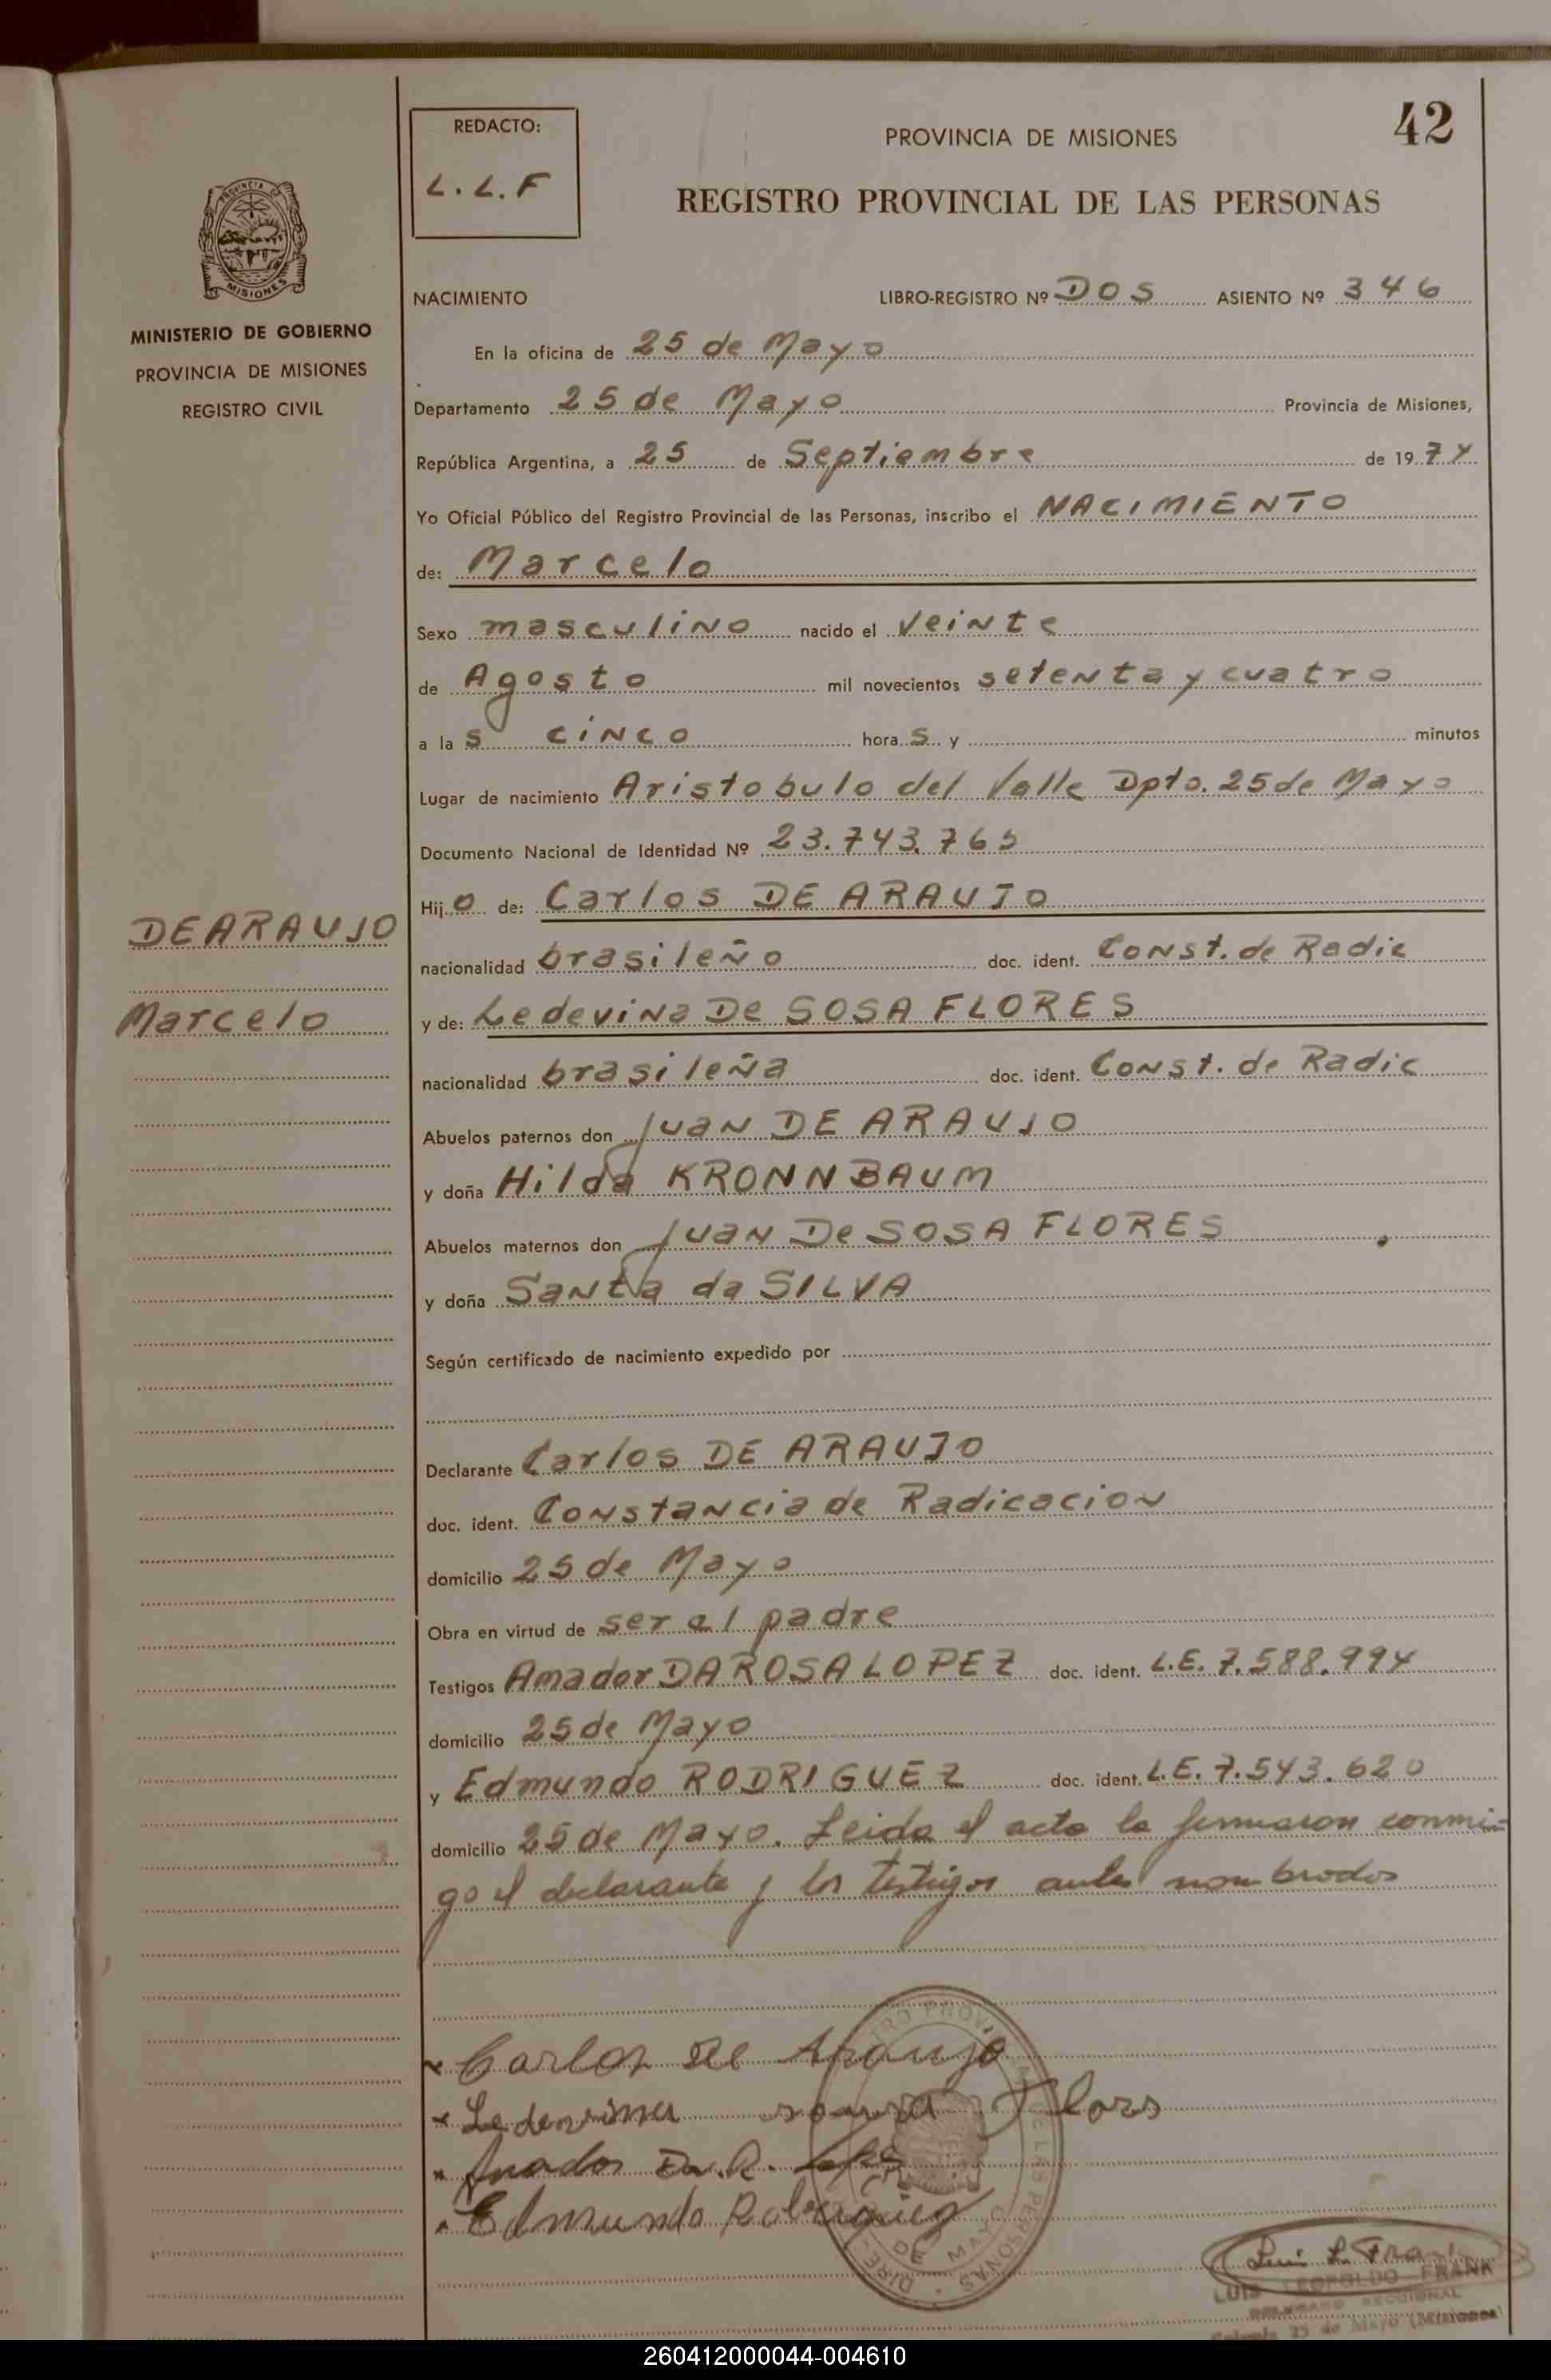 42
REDACTO:
L.L.F
PROVINCIA DE MISIONES
REGISTRO PROVINCIAL DE LAS PERSONAS
PROVINCIA DE
MISIONES
MINISTERIO DE GOBIERNO
PROVINCIA DE MISIONES
REGISTRO CIVIL
NACIMIENTO LIBRO-REGISTRO Nº DOS ASIENTO Nº 346
En la oficina de 25 de Mayo
Departamento 25 de Mayo Provincia de Misiones,
República Argentina, a 25 de Septiembre de 1974
Yo Oficial Público del Registro Provincial de las Personas, inscribo el NACIMIENTO
de: Marcelo
Sexo masculino nacido el veinte
de Agosto mil novecientos setenta y cuatro
a las cinco horas y minutos
Lugar de nacimiento Aristobulo del Valle Dpto. 25 de Mayo
Documento Nacional de Identidad Nº 23.743.765
Hijo de: Carlos DE ARAUJO
DE ARAUJO
nacionalidad brasileño doc. ident. Const. de Radic
Marcelo
y de: Ledevina De SOSA FLORES
nacionalidad brasileña doc. ident. Const. de Radic
Abuelos paternos don Juan DE ARAUJO
y doña Hilda KRONNBAUM
Abuelos maternos don Juan De SOSA FLORES
y doña Santa da SILVA
Según certificado de nacimiento expedido por
Declarante Carlos DE ARAUJO
doc. ident. Constancia de Radicacion
domicilio 25 de Mayo
Obra en virtud de ser el padre
Testigos Amador DA ROSA LOPEZ doc. ident. L.E. 7.588.994
domicilio 25 de Mayo
y Edmundo RODRIGUEZ doc. ident. L.E. 7.543.620
domicilio 25 de Mayo. Leida el acta la firmaron conmi-
go el declarante y los testigos antes nombrados
Carlos de Araujo
Ledevina souza Flors
Amador
Edmundo Rodriguez
DE MAYO
Luis L. Frank
LUIS LEOPOLDO FRANK
DELEGADO SECCIONAL
Colonia 25 de Mayo (Misiones)
260412000044-004610